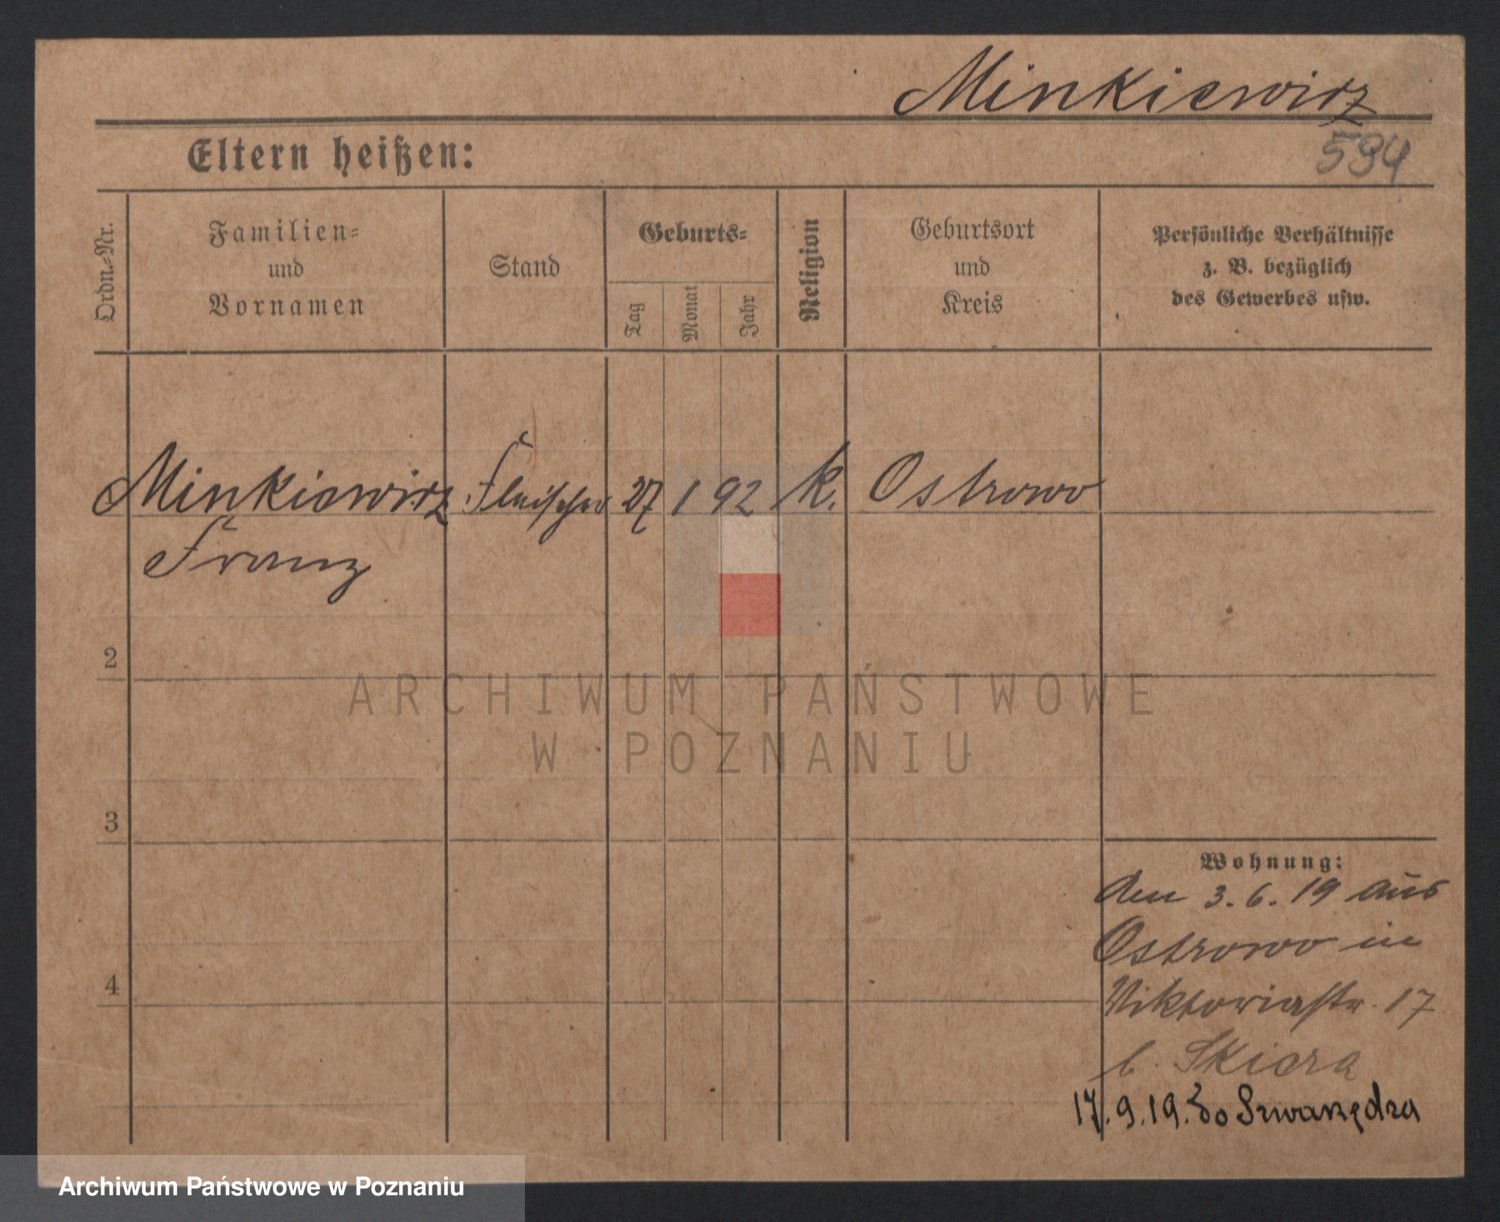 Minkiewicz
594
Eltern heißen:
Ordn.-Nr.
Familien-
und
Vornamen
Stand
Geburts-
Tag
Monat
Jahr
Religion
Geburtsort
und
Kreis
Persönliche Verhältnisse
z. B. bezüglich
des Gewerbes usw.
Minkiewicz Fleischer 27 1 92 k. Ostrowo
Franz
2
3
4
Wohnung:
den 3.6.19 aus
Ostrowo in
Viktoriastr. 17
b. Skiera
17.9.19. do Szwarzędza
ARCHIWUM PAŃSTWOWE
W POZNANIU
Archiwum Państwowe w Poznaniu